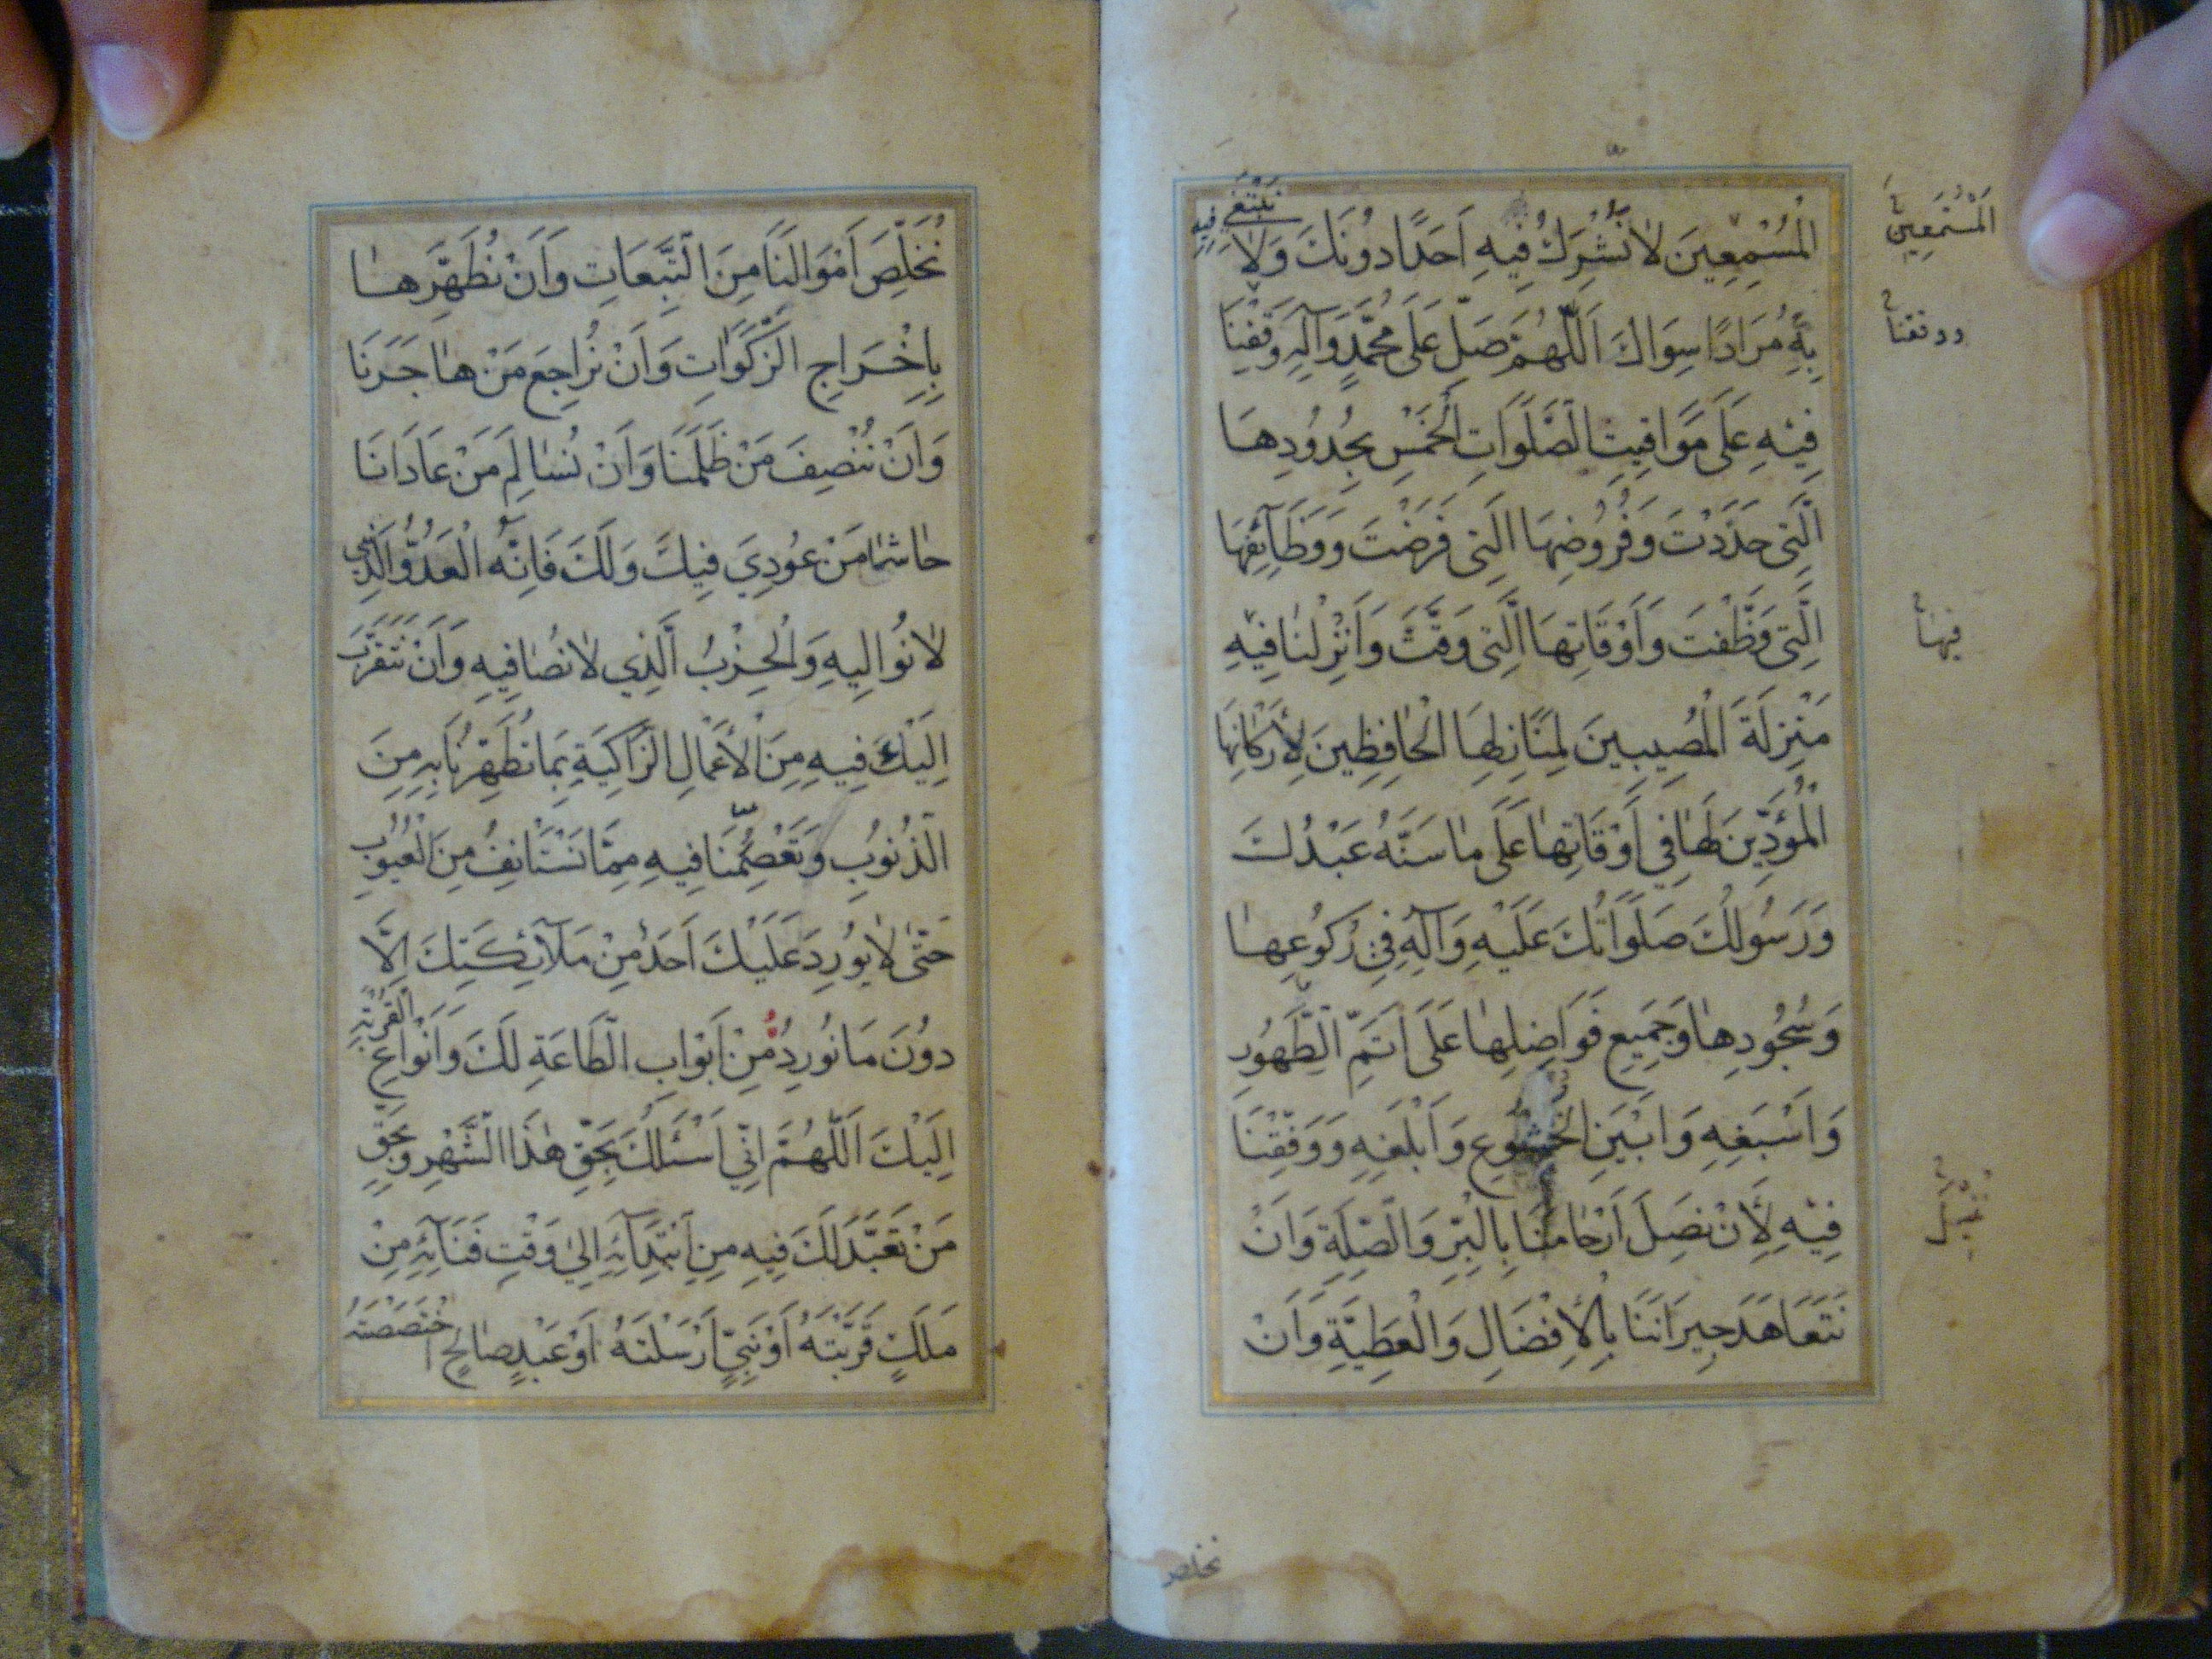 الْمُسْمِعِينَ لَا نُشْرِكُ فِيهِ أَحَدًا دُونَكَ وَلَا نَبْتَغِي فِيهِ
بِهِ مُرَادًا سِوَاكَ اَللّٰهُمَّ صَلِّ عَلَى مُحَمَّدٍ وَآلِهِ وَقِفْنَا
فِيْهِ عَلَى مَوَاقِيتِ الصَّلَوَاتِ الْخَمْسِ بِحُدُودِهَا
الَّتِي حَدَّدْتَ وَفُرُوضِهَا الَّتِي فَرَضْتَ وَوَظَائِفِهَا
الَّتِي وَظَّفْتَ وَأَوْقَاتِهَا الَّتِي وَقَّتَّ وَأَنْزِلْنَا فِيْهِ
مَنْزِلَةَ الْمُصِيبِينَ لِمَنَازِلِهَا الْحَافِظِينَ لِأَرْكَانِهَا
الْمُؤَدِّينَ لَهَا فِي أَوْقَاتِهَا عَلَى مَا سَنَّهُ عَبْدُكَ
وَرَسُولُكَ صَلَوَاتُكَ عَلَيْهِ وَآلِهِ فِي رُكُوعِهَا
وَسُجُودِهَا وَجَمِيعِ فَوَاضِلِهَا عَلَى أَتَمِّ الطَّهُورِ
وَأَسْبَغِهِ وَأَبْيَنِ الْخُشُوعِ وَأَبْلَغِهِ وَوَفِّقْنَا
فِيْهِ لِأَنْ نَصِلَ أَرْحَامَنَا بِالْبِرِّ وَالصِّلَةِ وَأَنْ
نَتَعَاهَدَ جِيرَانَنَا بِالْإِفْضَالِ وَالْعَطِيَّةِ وَأَنْ
الْمُسْتَمِعِينَ
ووقفنا
فيها
نخلص
نُخَلِّصَ أَمْوَالَنَا مِنَ التَّبِعَاتِ وَأَنْ نُطَهِّرَهَا
بِإِخْرَاجِ الزَّكَوَاتِ وَأَنْ نُرَاجِعَ مَنْ هَاجَرَنَا
وَأَنْ نُنْصِفَ مَنْ ظَلَمَنَا وَأَنْ نُسَالِمَ مَنْ عَادَانَا
حَاشَا مَنْ عُودِيَ فِيكَ وَلَكَ فَإِنَّهُ الْعَدُوُّ الَّذِي
لَا نُوَالِيهِ وَالْحِزْبُ الَّذِي لَا نُصَافِيهِ وَأَنْ نَتَقَرَّبَ
إِلَيْكَ فِيهِ مِنَ الْأَعْمَالِ الزَّاكِيَةِ بِمَا تُطَهِّرُنَا بِهِ مِنَ
الذُّنُوبِ وَتَعْصِمُنَا فِيهِ مِمَّا نَسْتَأْنِفُ مِنَ الْعُيُوبِ
حَتَّى لَا يُورِدَ عَلَيْكَ أَحَدٌ مِنْ مَلَآئِكَتِكَ إِلَّا
دُونَ مَا نُورِدُ مِنْ أَبْوَابِ الطَّاعَةِ لَكَ وَأَنْوَاعِ الْقُرْبَةِ
إِلَيْكَ اَللّٰهُمَّ إِنِّي أَسْئَلُكَ بِحَقِّ هٰذَا الشَّهْرِ وَبِحَقِّ
مَنْ تَعَبَّدَ لَكَ فِيهِ مِنِ ابْتِدَآئِهِ إِلَى وَقْتِ فَنَآئِهِ مِنْ
مَلَكٍ قَرَّبْتَهُ أَوْ نَبِيٍّ أَرْسَلْتَهُ أَوْ عَبْدٍ صَالِحٍ اخْتَصَصْتَهُ